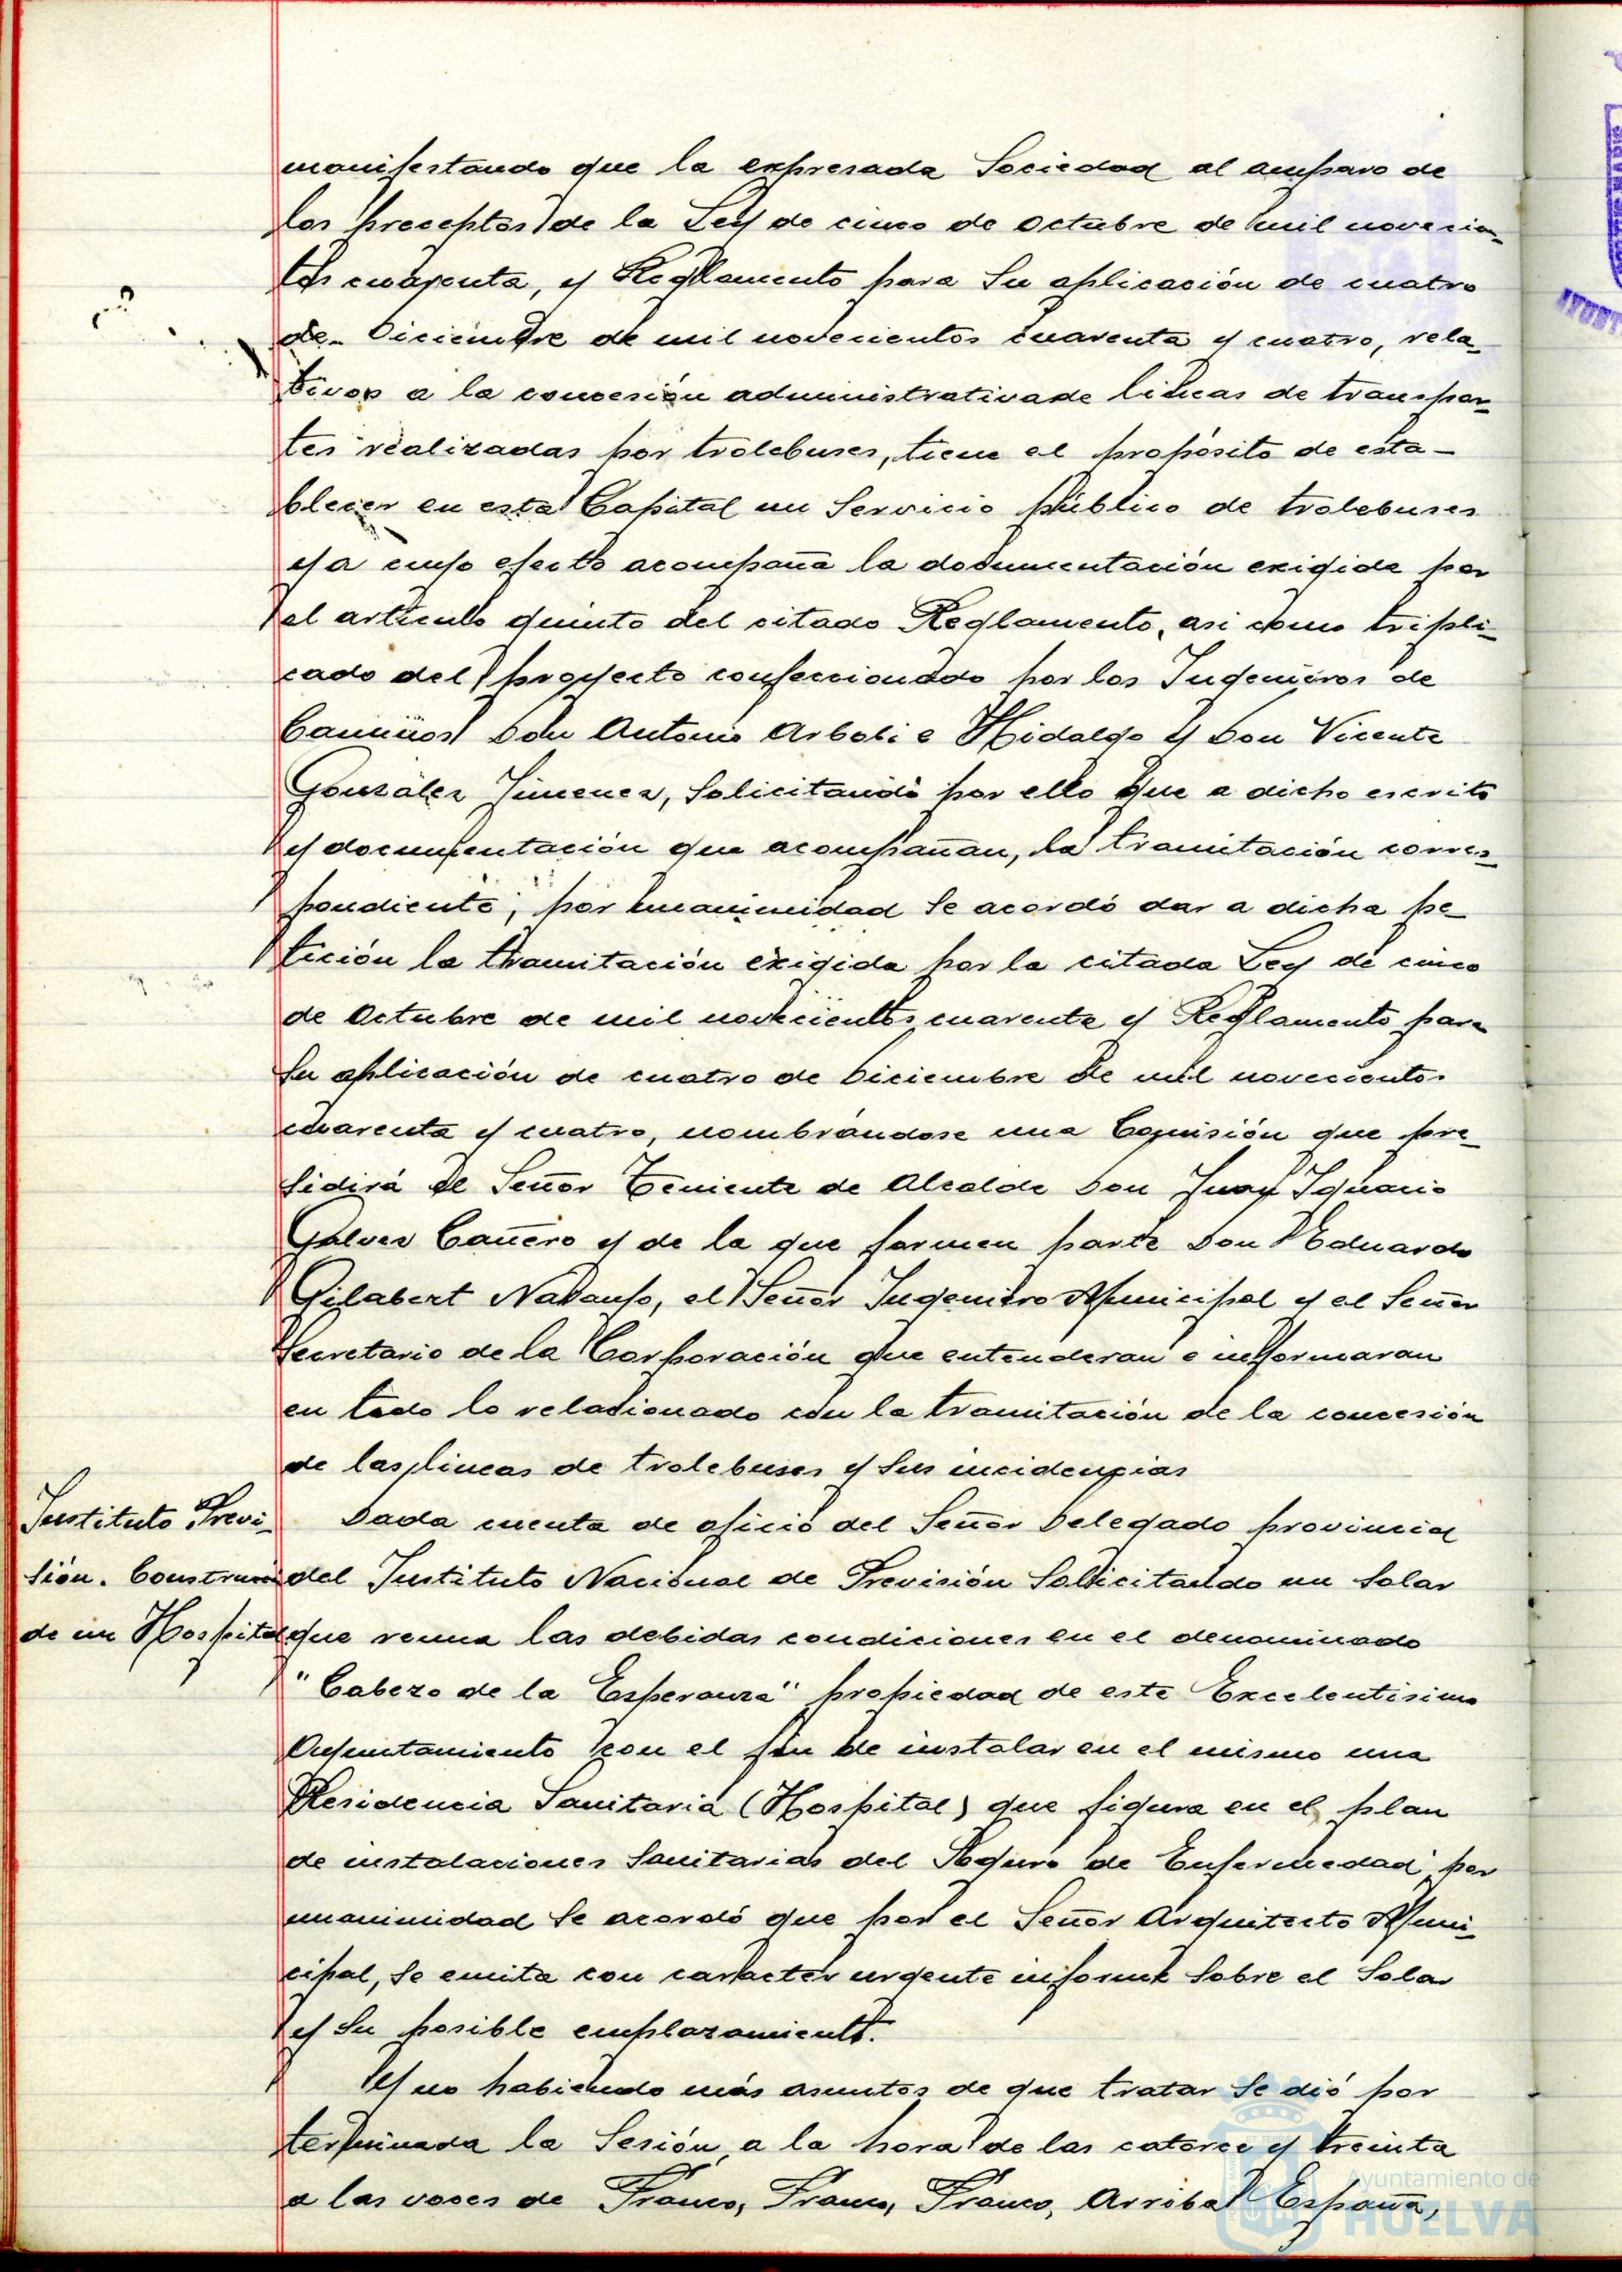 manifestando que la expresada Sociedad al amparo de
los preceptos de la Ley de cinco de octubre de mil novecien-
tos cuarenta, y Reglamento para su aplicación de cuatro
de Diciembre de mil novecientos cuarenta y cuatro, rela-
tivos a la concesión administrativa de lineas de transpor-
tes realizadas por trolebuses, tiene el propósito de esta-
blecer en esta Capital un Servicio público de trolebuses
y a cuyo efecto acompaña la documentación exigida por
el artículo quinto del citado Reglamento, asi como tripli-
cado del proyecto confeccionado por los Ingenieros de
Caminos Don Antonio Arboli e Hidalgo y Don Vicente
González Jimenez, Solicitando por ello que a dicho escrito
y documentación que acompañan, la tramitación corres-
pondiente; por unanimidad se acordó dar a dicha pe-
tición la tramitación exigida por la citada Ley de cinco
de Octubre de mil novecientos cuarenta y Reglamento para
su aplicación de cuatro de Diciembre de mil novecientos
cuarenta y cuatro, nombrándose una Comisión que pre-
sidirá el Señor Teniente de Alcalde Don Juan Ignacio
Galvez Cañero y de la que formen parte Don Eduardo
Gilabert Navauso, el Señor Ingeniero Municipal y el Señor
Secretario de la Corporación que entenderan e informaran
en todo lo relacionado con la tramitación de la concesión
de las lineas de trolebuses y sus incidencias
Instituto Previ-
sión. Construcción
de un Hospital
Dada cuenta de oficio del Señor Delegado provincial
del Instituto Nacional de Previsión Solicitando un Solar
que reuna las debidas condiciones en el denominado
"Cabezo de la Esperanza" propiedad de este Excelentisimo
Ayuntamiento con el fin de instalar en el mismo una
Residencia Sanitaria (Hospital) que figura en el plan
de instalaciones Sanitarias del Seguro de Enfermedad, por
unanimidad se acordó que por el Señor Arquitecto Muni-
cipal, se emita con caracter urgente informe sobre el Solar
y su posible emplazamiento.
Y no habiendo más asuntos de que tratar se dió por
terminada la Sesión a la hora de las catorce y treinta
a las voces de Franco, Franco, Franco, Arriba España,
Ayuntamiento de
HUELVA